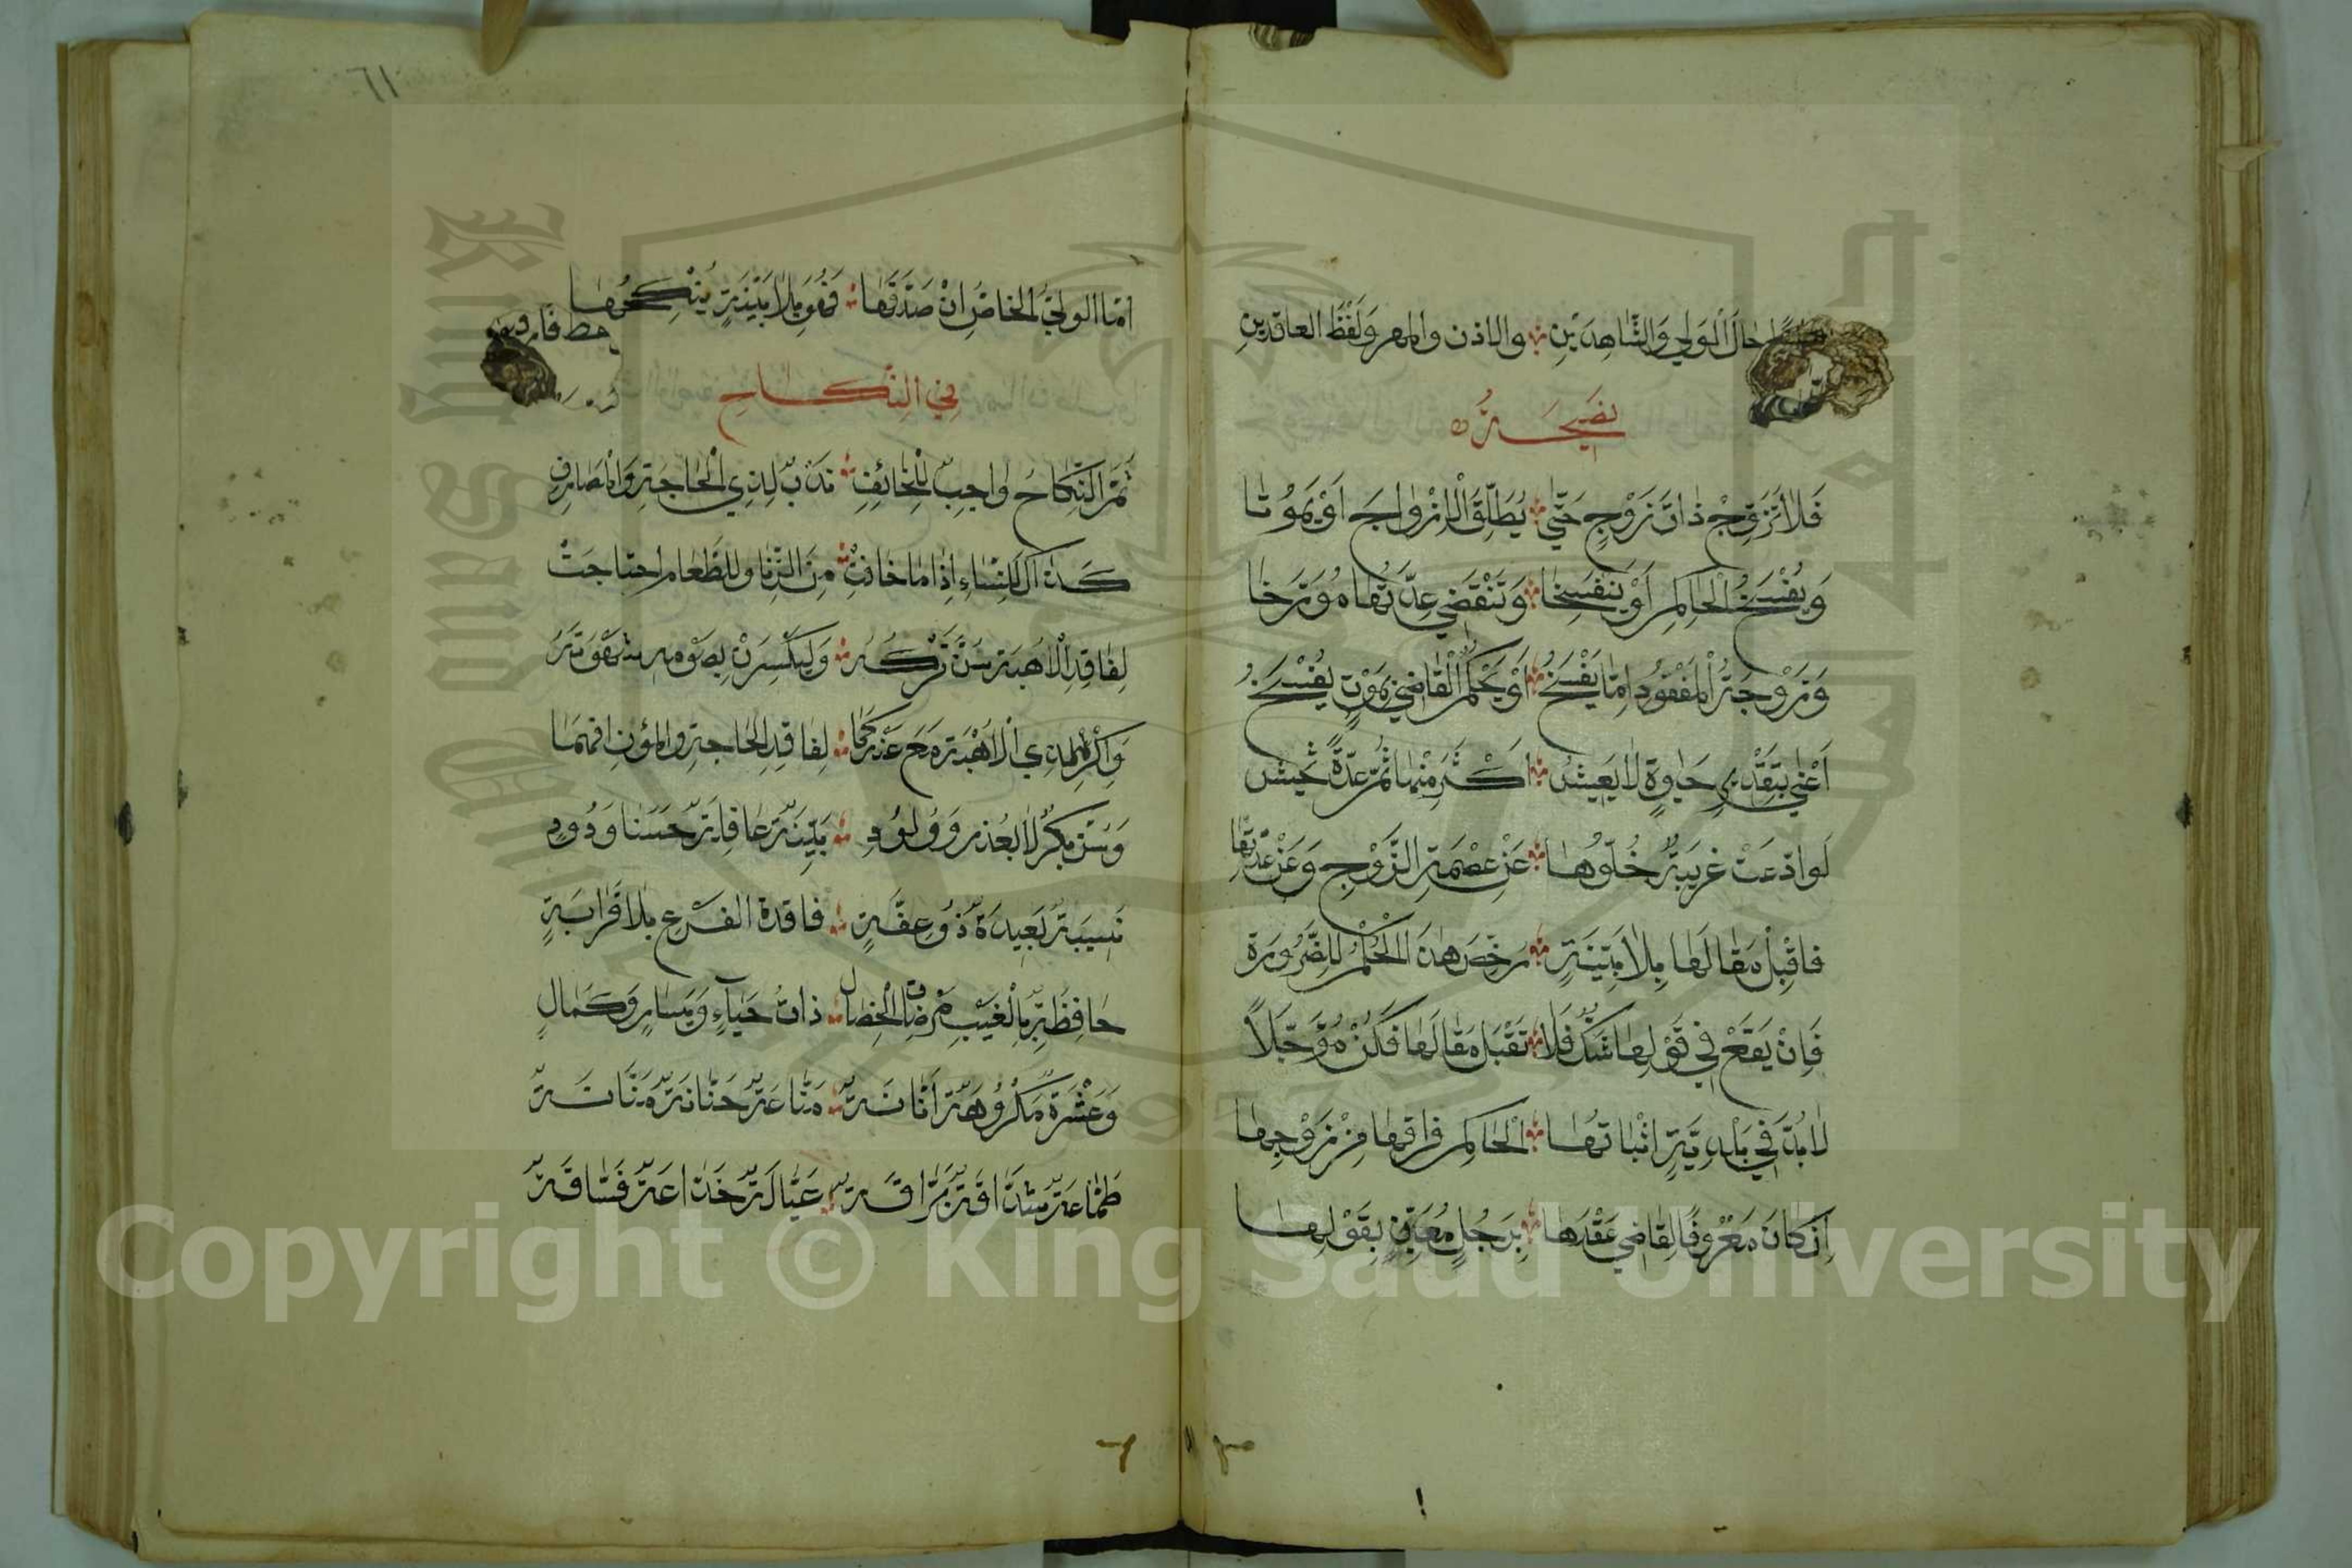 حال الولي والشاهدين ؞ والاذن والمهر ولفظ العاقدين
نَصِيْحَةٌ
فَلَا تُزَوِّجْ ذَاتَ زَوْجٍ حَتّٰى ؞ يُطَلِّقَ الْاَزْوَاجَ اَوْ يَمُوْتَا
وَيُفْسَخُ الْحَاكِمِ اَوْ يَنْفَسِخَا ؞ وَتَنْقَضِيْ عِدَّتُهَا مُوَرَّخَا
وَزَوْجَةُ الْمَفْقُوْدِ اِمَّا يَفْسَخُ ؞ اَوْ يَحْكُمُ الْقَاضِيْ بِمَوْتٍ يُفْسَخُ
اَعْنِيْ بِتَقْدِيْرِ حَيٰوةٍ لَا يَعِيْشُ ؞ اَكْثَرَ مِنْهَا ثُمَّ عِدَّةً تَحِيْشُ
لَوِ ادَّعَتْ غَرِيْبَةٌ خُلُوَّهَا ؞ عَنْ عِصْمَةِ الزَّوْجِ وَعَنْ عِدَّتِهَا
فَاقْبِلْ مَقَالَهَا بِلَا بَيِّنَةٍ ؞ رُخِّصَ هٰذَا الْحُكْمُ لِلضَّرُوْرَةِ
فَاِنْ يَقَعْ فِيْ قَوْلِهَا شَكٌّ فَلَا ؞ تَقْبَلْ مَقَالَهَا فَكُنْ مُؤَجِّلًا
لَا بُدَّ فِيْ بَلْدِيَّةٍ اِثْبَاتُهَا ؞ الْحَاكِمِ فِرَاقَهَا مِنْ زَوْجِهَا
اِنْ كَانَ مَعْرُوْفًا لِقَاضِيْ عَقْدَهَا ؞ بِرَجُلٍ مُعَيَّنٍ بِقَوْلِهَا
٦١
اَمَّا الْوَلِيُّ الْخَاصُّ اِنْ صَدَّقَهَا ؞ فَهُوَ بِلَا بَيِّنَةٍ يُنْكِحُهَا
فِي النِّكَاحِ
ثُمَّ النِّكَاحُ وَاجِبٌ لِلْخَائِفِ ؞ نَدْبٌ لِذِي الْحَاجَةِ وَالْمَصَارِفِ
كَذَاكَ لِلنِّسَاءِ اِذَا مَا خَافَتْ ؞ مِنَ الزِّنَا وَلِلطَّعَامِ احْتَاجَتْ
لِفَاقِدِ الْاُهْبَةِ سُنَّ تَرْكُهُ ؞ وَلْيَكْسِرَنْ بِصَوْمِهِ شَهْوَتَهُ
وَاكْرَهْ لِذِي الْاُهْبَةِ مَعَ عَذْرٍ كَمَا ؞ لِفَاقِدِ الْحَاجَةِ وَالْمُؤَنِ افْهَمَا
وَسُنَّ بِكْرٌ لَا بِعُذْرٍ وَوَلُوْدٍ ؞ بَيِّنَةٌ عَاقِلَةٌ حَسْنَا وَدُوْدٍ
نَسِيْبَةٌ بَعِيْدَةٌ ذُوْ عِفَّةٍ ؞ فَاقِدَةُ الْفَرْعِ بِلَا قَرَابَةٍ
حَافِظَةٌ بِالْغَيْبِ مَرْضَاةُ الْخِصَالِ ؞ ذَاتُ حَيَآءٍ وَيَسَارٍ وَكَمَالٍ
وَعَشْرَةٌ مَكْرُوْهَةٌ اَنَّانَةٌ ؞ مَنَّاعَةٌ حَنَّانَةٌ مَنَّانَةٌ
طَمَّاعَةٌ شَدَّاقَةٌ بَرَّاقَةٌ ؞ عَيَّالَةٌ خَدَّاعَةٌ فَسَّاقَةٌ
Copyright © King Saud University
King Saud University
1957